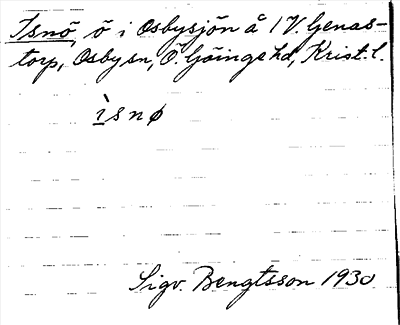 Isnö, ö i Osbysjön å 1 V. Genas-
torp, Osby sn, Ö. Göinge hd, Krist. l.
ìsnø
Sigv. Bengtsson 1930